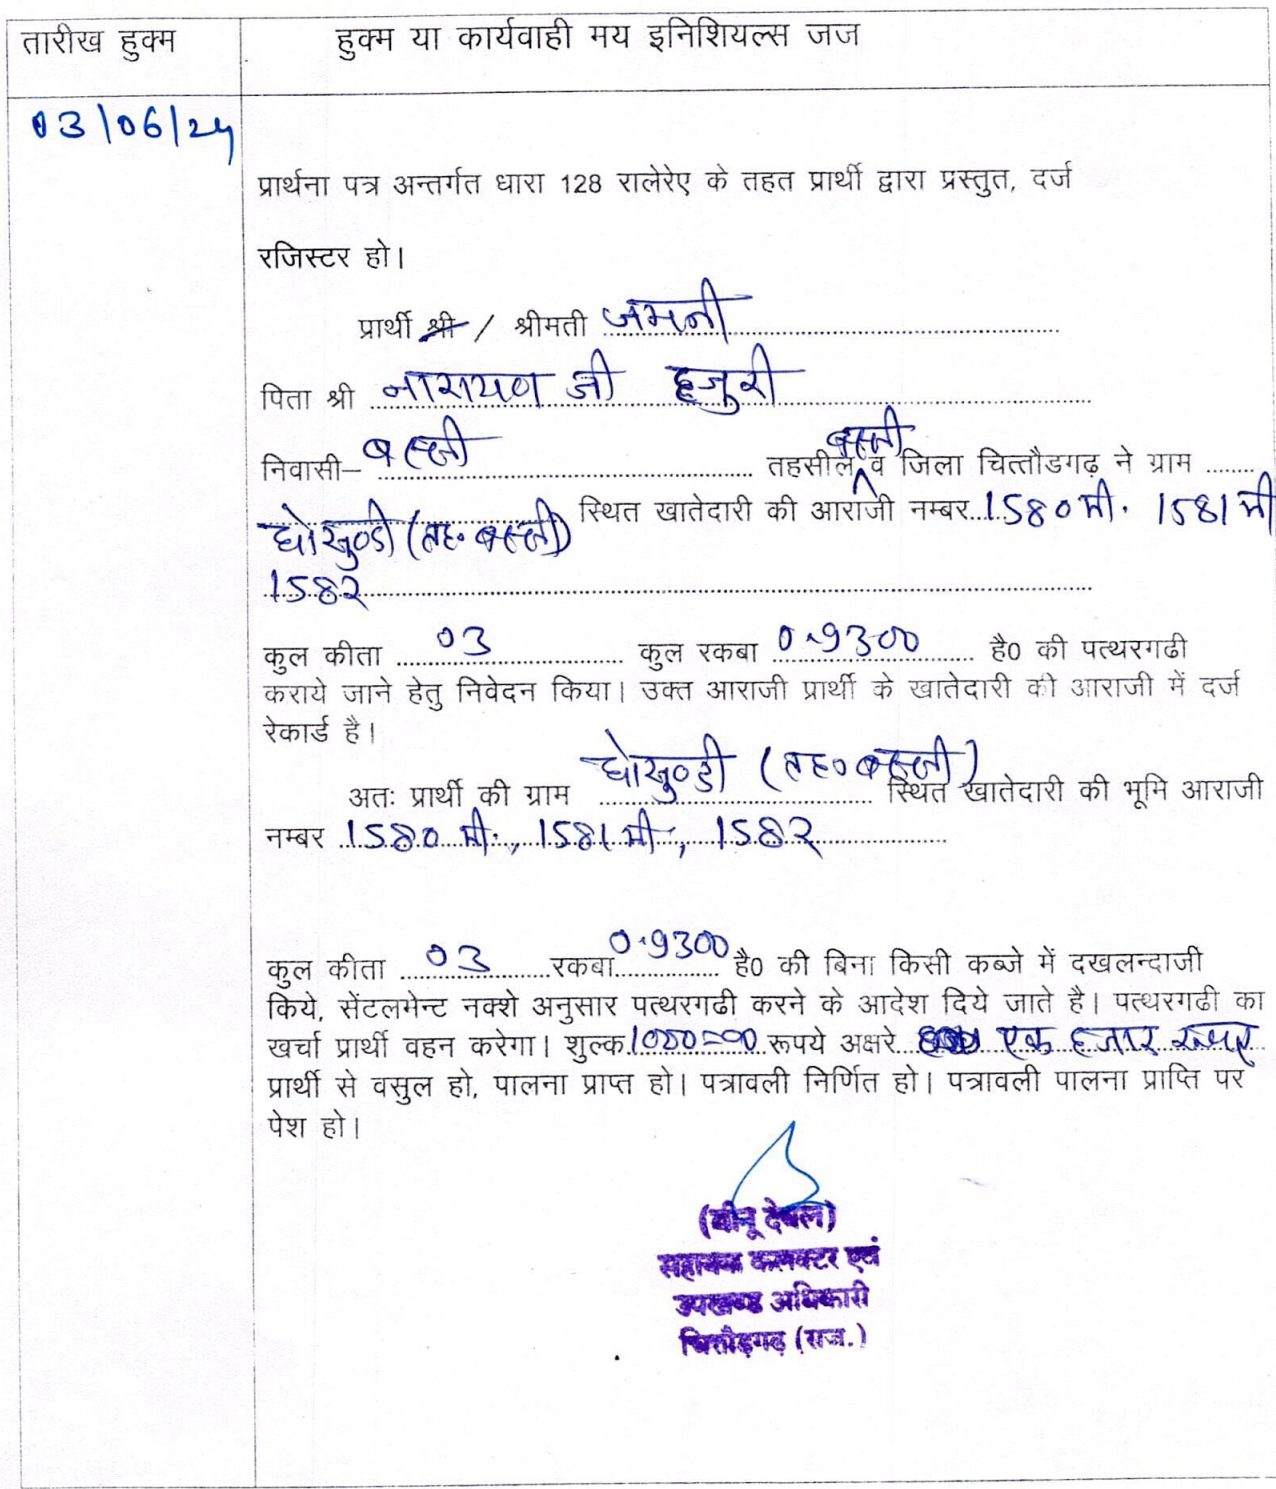 तारीख हुक्म
हुक्म या कार्यवाही मय इनिशियल्स जज
03/06/24
प्रार्थना पत्र अन्तर्गत धारा 128 रालेरेए के तहत प्रार्थी द्वारा प्रस्तुत, दर्ज
रजिस्टर हो।
प्रार्थी श्री / श्रीमती जमनी
पिता श्री नारायण जी हजुरी
निवासी– बस्सी तहसील बस्सी व जिला चित्तौडगढ़ ने ग्राम ........
घोसुण्डी (तह० बस्सी) स्थित खातेदारी की आराजी नम्बर 1580 मी. 1581 मी
1582
कुल कीता 03 कुल रकबा 0.9300 है0 की पत्थरगढी
कराये जाने हेतु निवेदन किया। उक्त आराजी प्रार्थी के खातेदारी की आराजी में दर्ज
रेकार्ड है।
अतः प्रार्थी की ग्राम घोसुण्डी (तह० बस्सी) स्थित खातेदारी की भूमि आराजी
नम्बर 1580 मी., 1581 मी., 1582
कुल कीता 03 रकबा 0.9300 है0 की बिना किसी कब्जे में दखलन्दाजी
किये, सेंटलमेन्ट नक्शे अनुसार पत्थरगढी करने के आदेश दिये जाते है। पत्थरगढी का
खर्चा प्रार्थी वहन करेगा। शुल्क 1000=00 रूपये अक्षरे एक हजार रूपए
प्रार्थी से वसुल हो, पालना प्राप्त हो। पत्रावली निर्णित हो। पत्रावली पालना प्राप्ति पर
पेश हो।
(बीनू देवल)
सहायक कलक्टर एवं
उपखण्ड अधिकारी
चित्तौड़गढ़ (राज.)